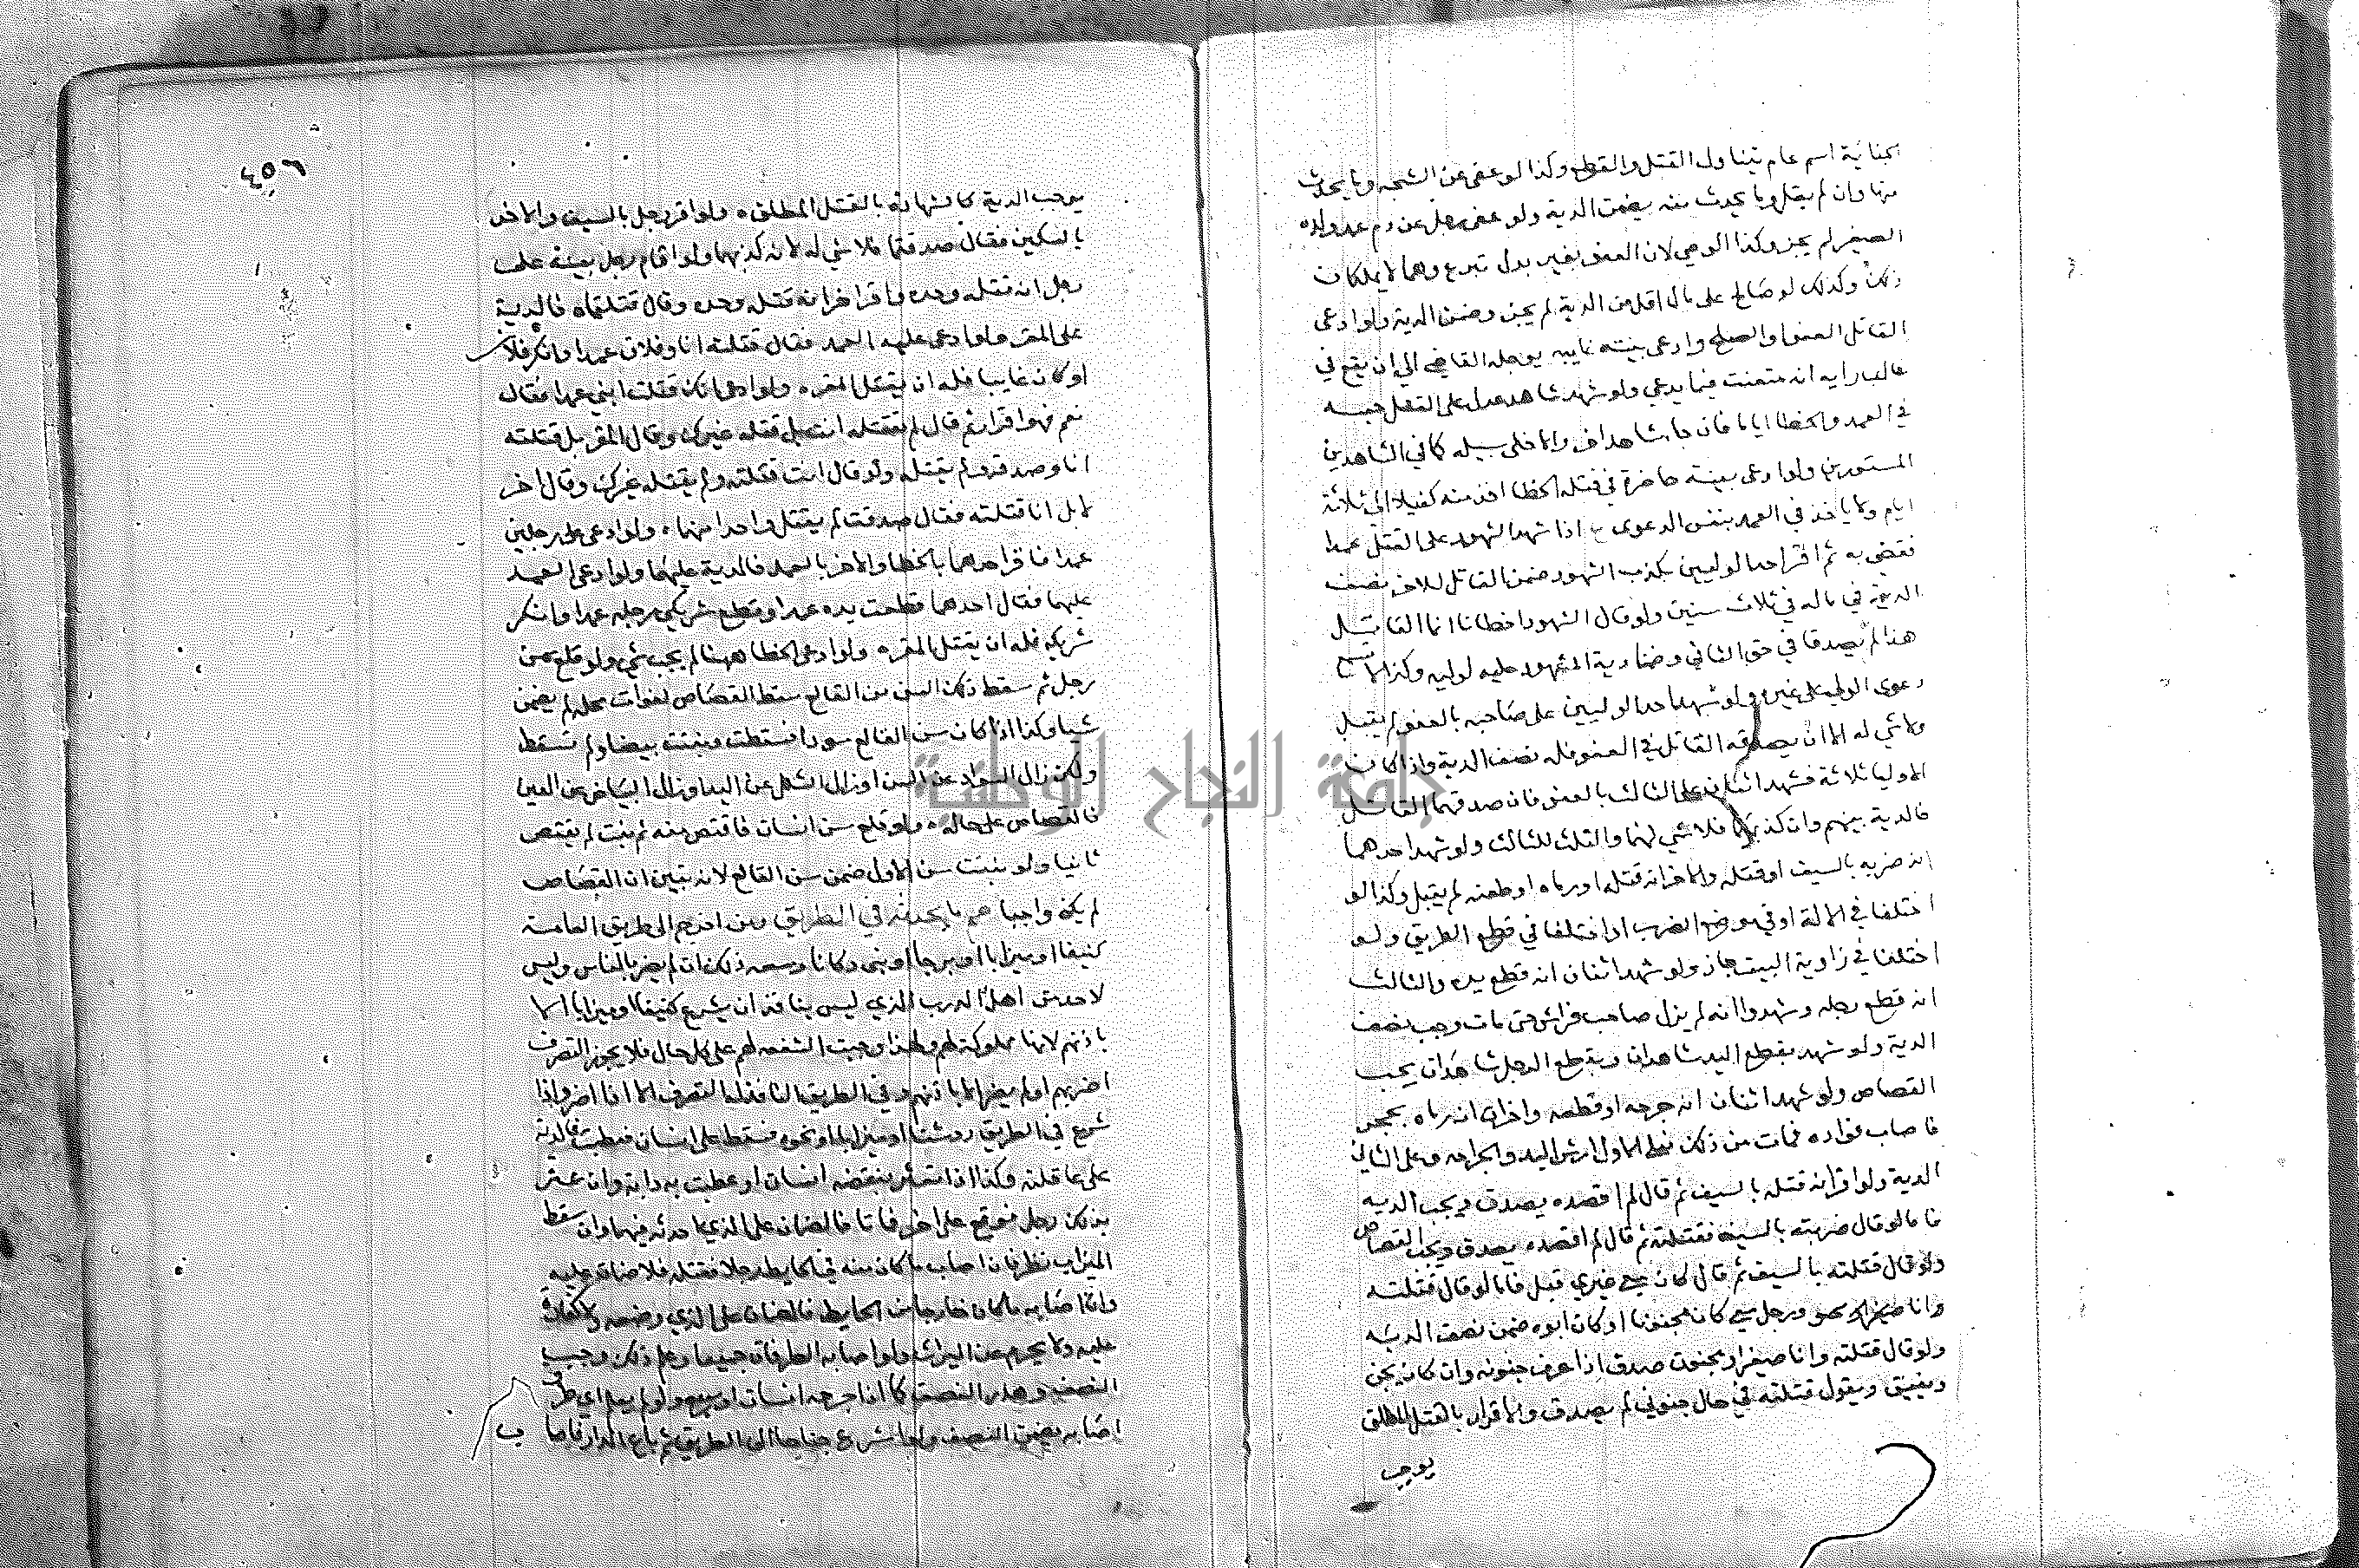 الجناية اسم عام يتناول القتل والقطع وكذا لو عفى عن الشجه وما يحدث
منها وان لم يقل وما يحدث منه يضمن الدية ولو عفى رجل عن دم عبد ولده
الصغير لم يجز وكذا الوصي لان العفو بغير بدل تبرع وهما لا يملكان
ذلك وكذلك لو صالح على مال اقل من الدية لم يجز وضمن الدية ولو ادعى
القاتل العفو او الصلح وادعى بينة غايبه يوجله القاضي الى ان يقع في
غالب رايه انه متعنت فيما يدعي ولو شهد شاهد عدل على القتل حبسه
في العمد والخطا اياما فان جا بشاهد اخر والا خلى سبيله كما في الشاهدين
المستورين ولو ادعى بينة حاضرة في قتل الخطا اخذ منه كفيلا الى ثلاثة
ايام ولا ياخذ في العمد بنفس الدعوى اذا شهد الشهود على القتل عمدا
فقضي به ثم اقر احد الوليين بكذب الشهود ضمن القاتل للاخر نصف
الدية في ماله في ثلاث سنين ولو قال الشهود اخطانا انما القاتل
هذا لم يصدقا في حق الثاني وضمنا دية المشهود عليه لوليه وكذا لا تسمع
دعوى الولي على غيره ولو شهد احد الوليين على صاحبه بالعفو لم يقبل
ولا شي له الا ان يصدقه القاتل في العفو فله نصف الدية واذا كان
الاوليا ثلاثة فشهد اثنان على الثالث بالعفو فان صدقهما القاتل
فالدية بينهم وان كذبهما فلا شي لهما والثلث للثالث ولو شهد احدهما
انه ضربه بالسيف او قتله والاخر انه قتله او رماه او طعنه لم يقبل وكذا لو
اختلفا في الالة او في موضع الضرب او اختلفا في قطع الطريق ولو
اختلفا في زاوية البيت جاز ولو شهد اثنان انه قطع يده والثالث
انه قطع رجله وشهدوا انه لم يزل صاحب فراش حتى مات وجب نصف
الدية ولو شهد بقطع اليد شاهدان وبقطع الرجل شاهدان يجب
القصاص ولو شهد اثنان انه جرحه او قطعه واخران انه رماه بحجر
فاصاب فواده فمات من ذلك فعلى الاول ارش اليد والجراحه وعلى الثاني
الدية ولو اقر انه قتله بالسيف ثم قال لم اقصده يصدق ويجب الديه
فاما لو قال ضربته بالسيف فقتلته ثم قال لم اقصده يصدق ويجب القصاص
ولو قال قتلته بالسيف ثم قال كان معي غيري قبل فاما لو قال قتلته
وانا صغير ورجل معي كان مجنونا او كان ابوه ضمن نصف الدية
ولو قال قتلته وانا صغير او مجنون صدق اذا عرف جنونه وان كان يجن
ويفيق ويقول قتلته في حال جنوني لم يصدق والاقرار بالقتل المطلق
يوجب
٤٥٦
يوجب الدية كالشهادة بالقتل المطلق ولو اقر رجل بالسيف والاخر
بالسكين فقال صدقتما فلا شي له لانه كذبهما ولو اقام رجل بينة على
رجل انه قتله وحده واقر اخر انه قتله وحده وقال قتلتماه فالدية
على المقر ولو ادعى عليه العمد فقال قتلته انا وفلان عمدا وانكر فلان
او كان غايبا فله ان يقتل المقر ولو ادعى انك قتلت ابني عمدا فقال
نعم فهو اقرار ثم قال لم تقتله انت بل قتله غيرك وقال المقر بل قتلته
انا وصدقه لم يقتله ولو قال انت قتلته ولم يقتله غيرك وقال اخر
لا بل انا قتلته فقال صدقت لم يقتل واحدا منهما ولو ادعى على رجلين
عمدا فاقر احدهما بالخطا والاخر بالعمد فالدية عليهما ولو ادعى العمد
عليهما فقال احدهما قطعت يده عمدا وقطع شريكي رجله عمدا وانكر
شريكه فله ان يقتل المقر ولو ادعى الخطا ههنا لم يجب شي ولو قلع سن
رجل ثم سقط ذلك السن من القالع سقط القصاص لفوات محله ولم يضمن
شيا وكذا اذا كان سن القالع سودا فسقطت ونبتت بيضا ولم تسقط
ولكن زال السواد عن السن او زال الشلل عن اليد او زال البياض عن العين
فالقصاص على حاله ولو قلع سن انسان فاقتص منه ثم نبت لم يقتص
ثانيا ولو نبتت سن الاول ضمن سن القالع لانه تبين ان القصاص
لم يكن واجبا ما يحدثه في الطريق ومن اخرج الى طريق العامة
كنيفا او ميزابا او برجا او بنى دكانا وسعه ذلك ان لم يضر بالناس وليس
لاحد من اهل الدرب الذي ليس بنافذ ان يشرع كنيفا او ميزابا الا
باذنهم لانها مملوكة لهم ولهذا وجبت الشفعه لهم على كل حال فلا يجوز التصرف
اضر بهم او لم يضر الا باذنهم وفي الطريق النافذ له التصرف الا اذا اضر واذا
شرع في الطريق روشنا او ميزابا او نحوه فسقط على انسان فعطب فالدية
على عاقلته وكذا اذا تعثر بنقضه انسان او عطبت به دابة وان عثر
بذلك رجل فوقع على اخر فماتا فالضمان على الذي احدثه فيهما وان سقط
الميزاب نظر فان اصاب ما كان منه في الحايط رجلا فقتله فلا ضمان عليه
وان اصابه ما كان خارجا من الحايط فالضمان على الذي وضعه ولا كفارة
عليه ولا يحرم عن الميراث ولو اصابه الطرفان جميعا وعلم ذلك وجب
النصف وهدر النصف كما اذا جرحه انسان او سبع ولو لم يعلم اي طرف
اصابه يضمن النصف ولو اشرع جناحا الى الطريق ثم باع الدار فاصاب
جامعة النجاح الوطنية